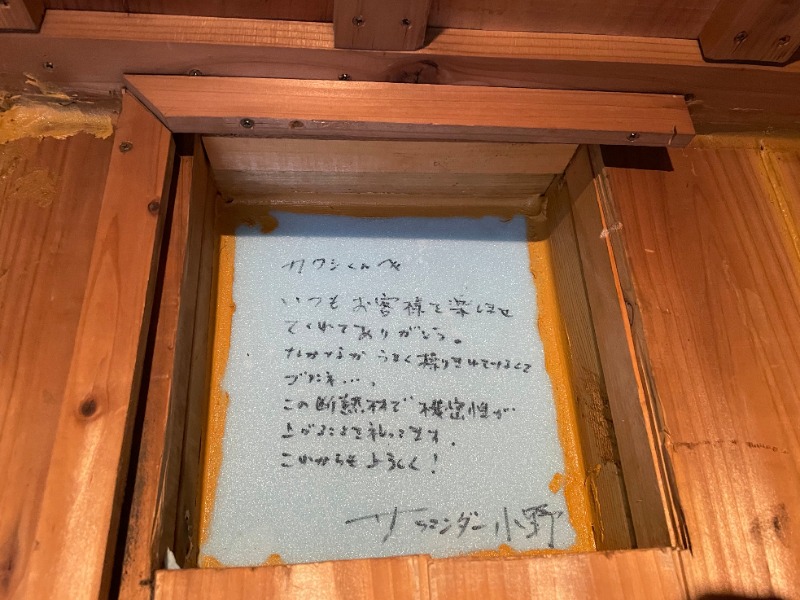 サウシくんへ
いつもお客様を楽しませ
てくれてありがとう。
なかつるが うまく操りきれてなくて
ゴメンネ…。
この断熱材で 機密性が
上がることを祈ってます。
これからもよろしく！
サラマンダー小野